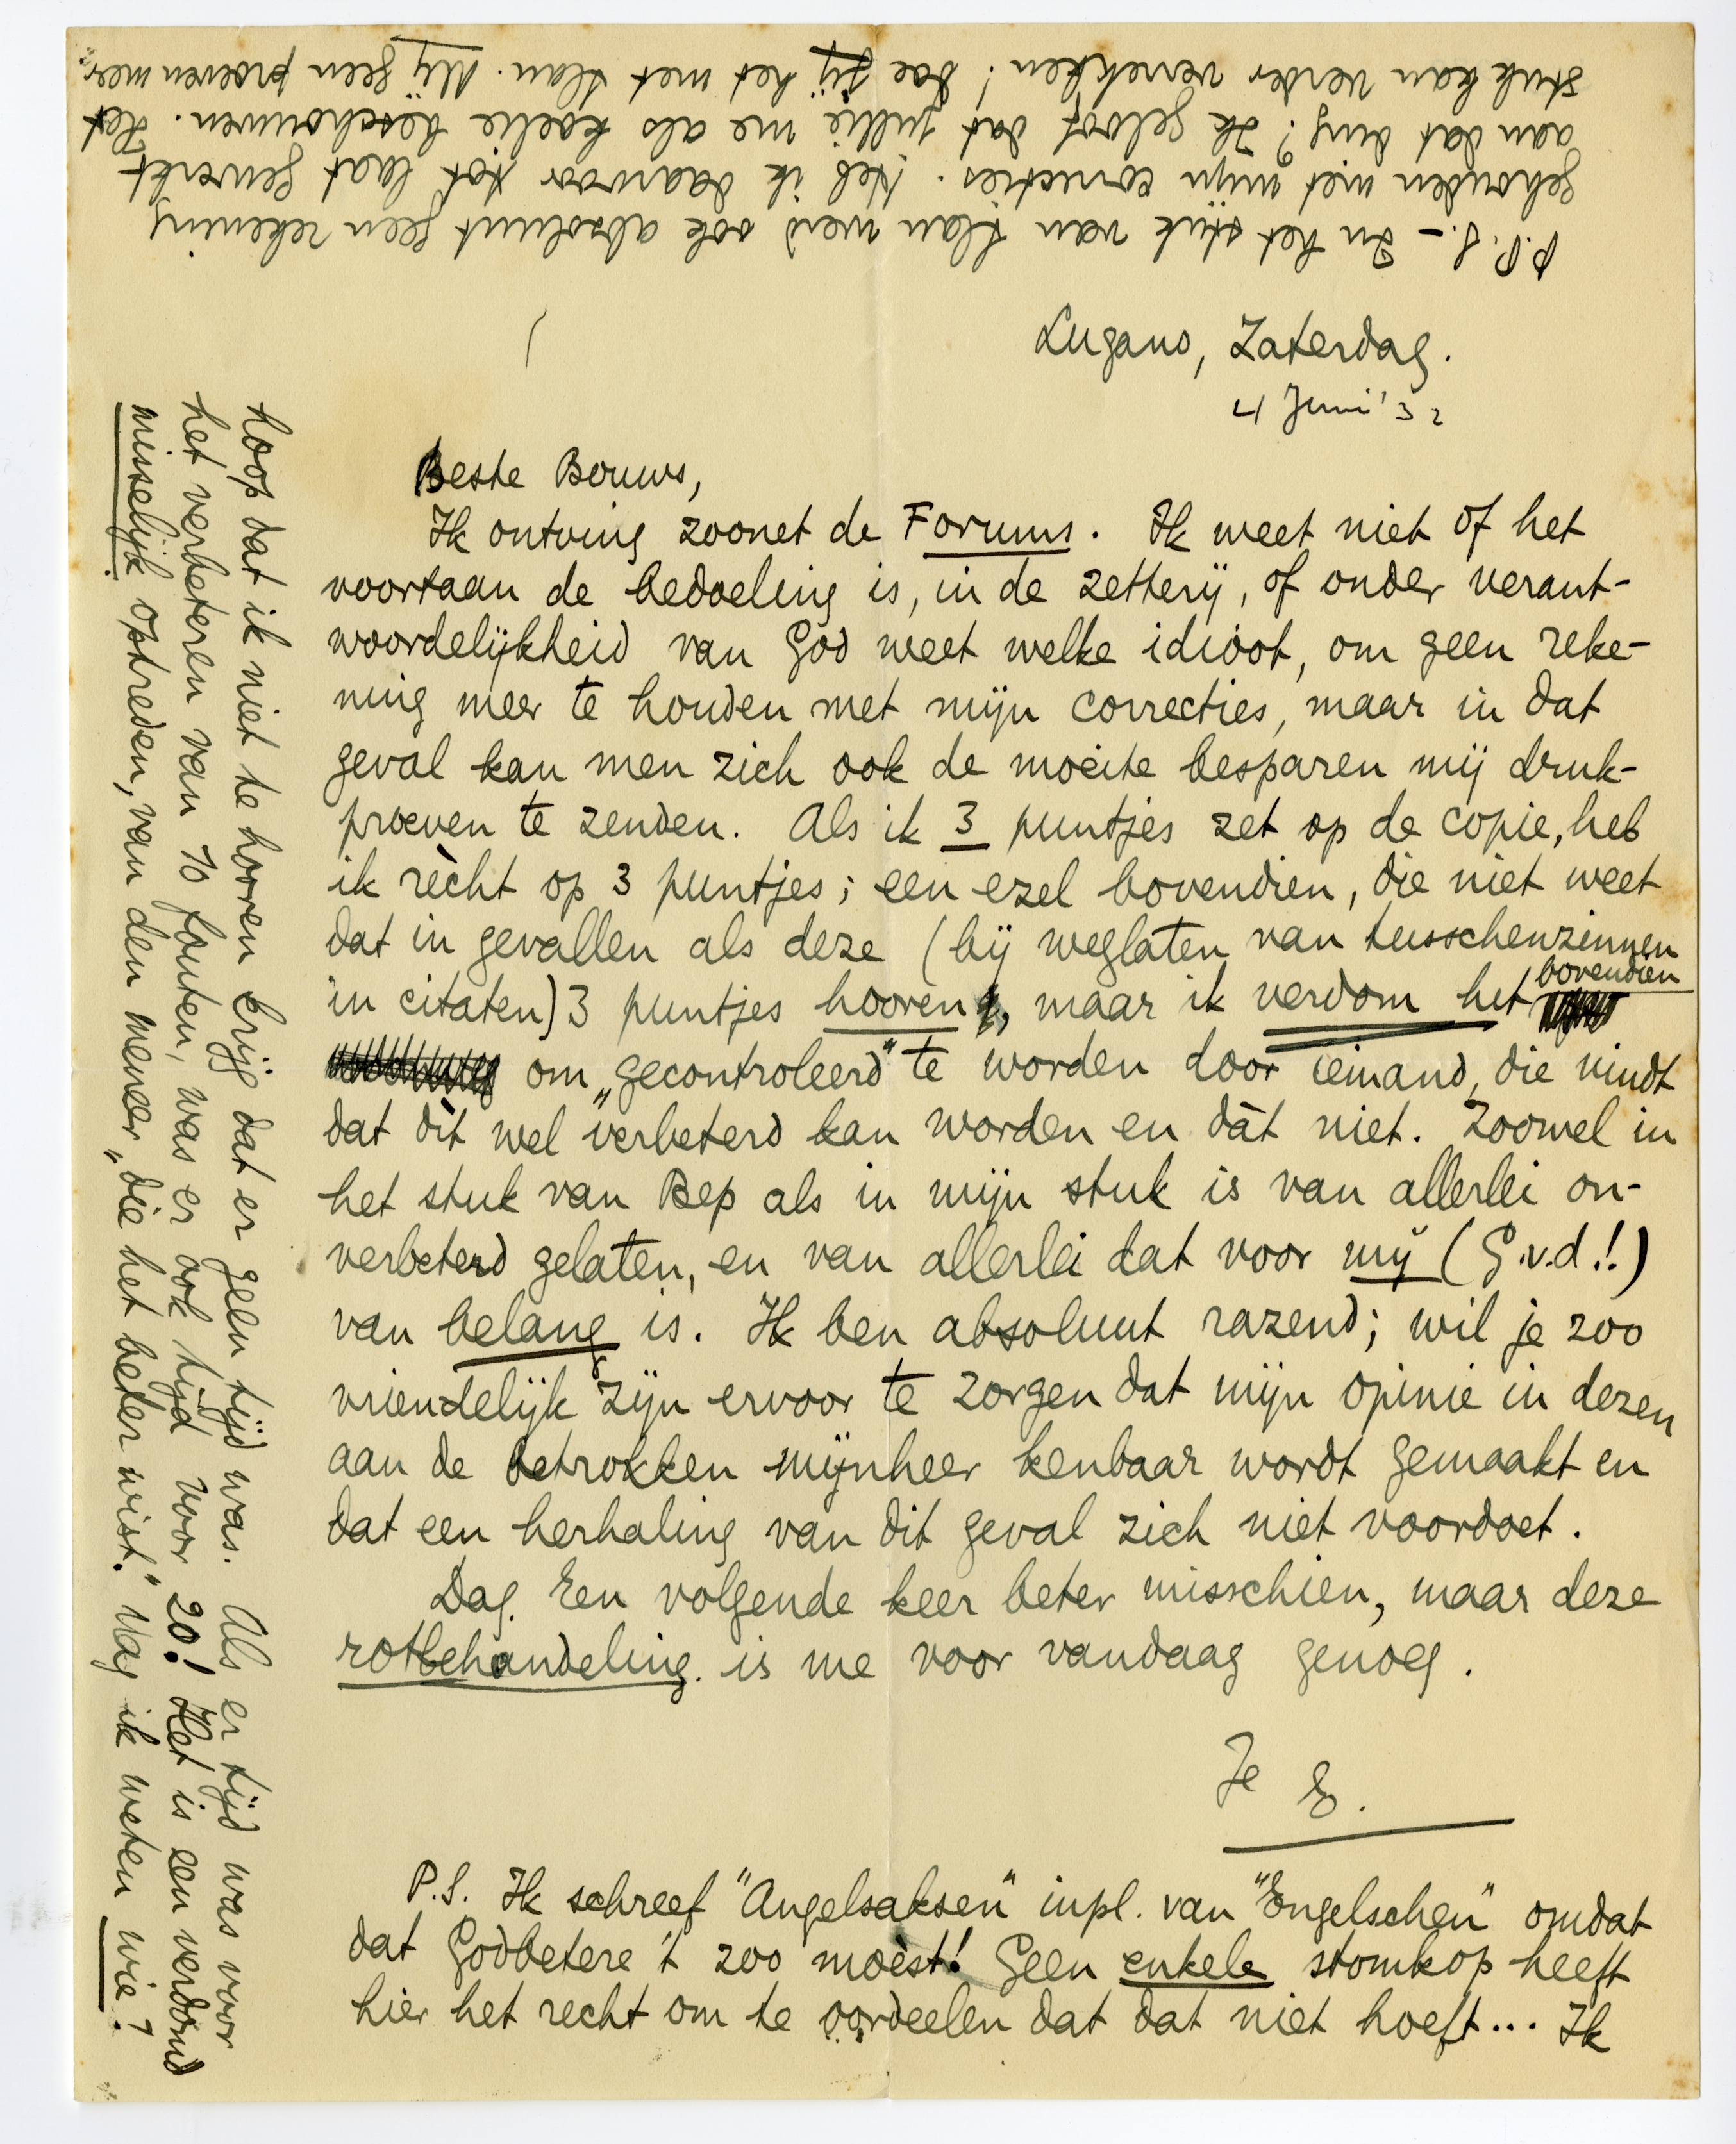 Lugano, Zaterdag.
4 Juni '32
Beste Bouws,
Ik ontving zoonet de Forums. Ik weet niet of het
voortaan de bedoeling is, in de zetterij, of onder verant-
woordelijkheid van God weet welke idioot, om geen reke-
ning meer te houden met mijn correcties, maar in dat
geval kan men zich ook de moeite besparen mij druk-
proeven te zenden. Als ik 3 puntjes zet op de copie, heb
ik rècht op 3 puntjes; een ezel bovendien, die niet weet
dat in gevallen als deze (bij weglaten van tusschenzinnen
in citaten) 3 puntjes hooren, maar ik verdom het bovendien
om „gecontroleerd” te worden door iemand, die vindt
dat dìt wel verbeterd kan worden en dàt niet. Zoowel in
het stuk van Bep als in mijn stuk is van allerlei on-
verbeterd gelaten, en van allerlei dat voor mij (G.v.d.!!)
van belang is. Ik ben absoluut razend; wil je zoo
vriendelijk zijn ervoor te zorgen dat mijn opinie in dezen
aan de betrokken mijnheer kenbaar wordt gemaakt en
dat een herhaling van dit geval zich niet voordoet.
Dag. Een volgende keer beter misschien, maar deze
rotbehandeling is me voor vandaag genoeg.
Je E.
P.S. Ik schreef "Angelsaksen" inpl. van "Engelschen" omdat
dat Godbetere 't zoo moèst! Geen enkele stomkop heeft
hier het recht om te oordeelen dat dat niet hoeft... Ik
hoop dat ik niet te hooren krijg dat er geen tijd was. Als er tijd was voor
het verbeteren van 10 fouten, was er ook tijd voor 20! Het is een verdomd
misselijk optreden, van den meneer „die het beter wist.” Mag ik weten wie?
P.P.S. – In het stuk van Slau werd ook absoluut geen rekening
gehouden met mijn correcties. Heb ik daarvoor tot laat gewerkt
aan dat ding? Ik geloof dat jullie me als koelie beschouwen. Het
stuk kan verder verrekken! Doe jij het met Slau. Mij geen proeven meer.